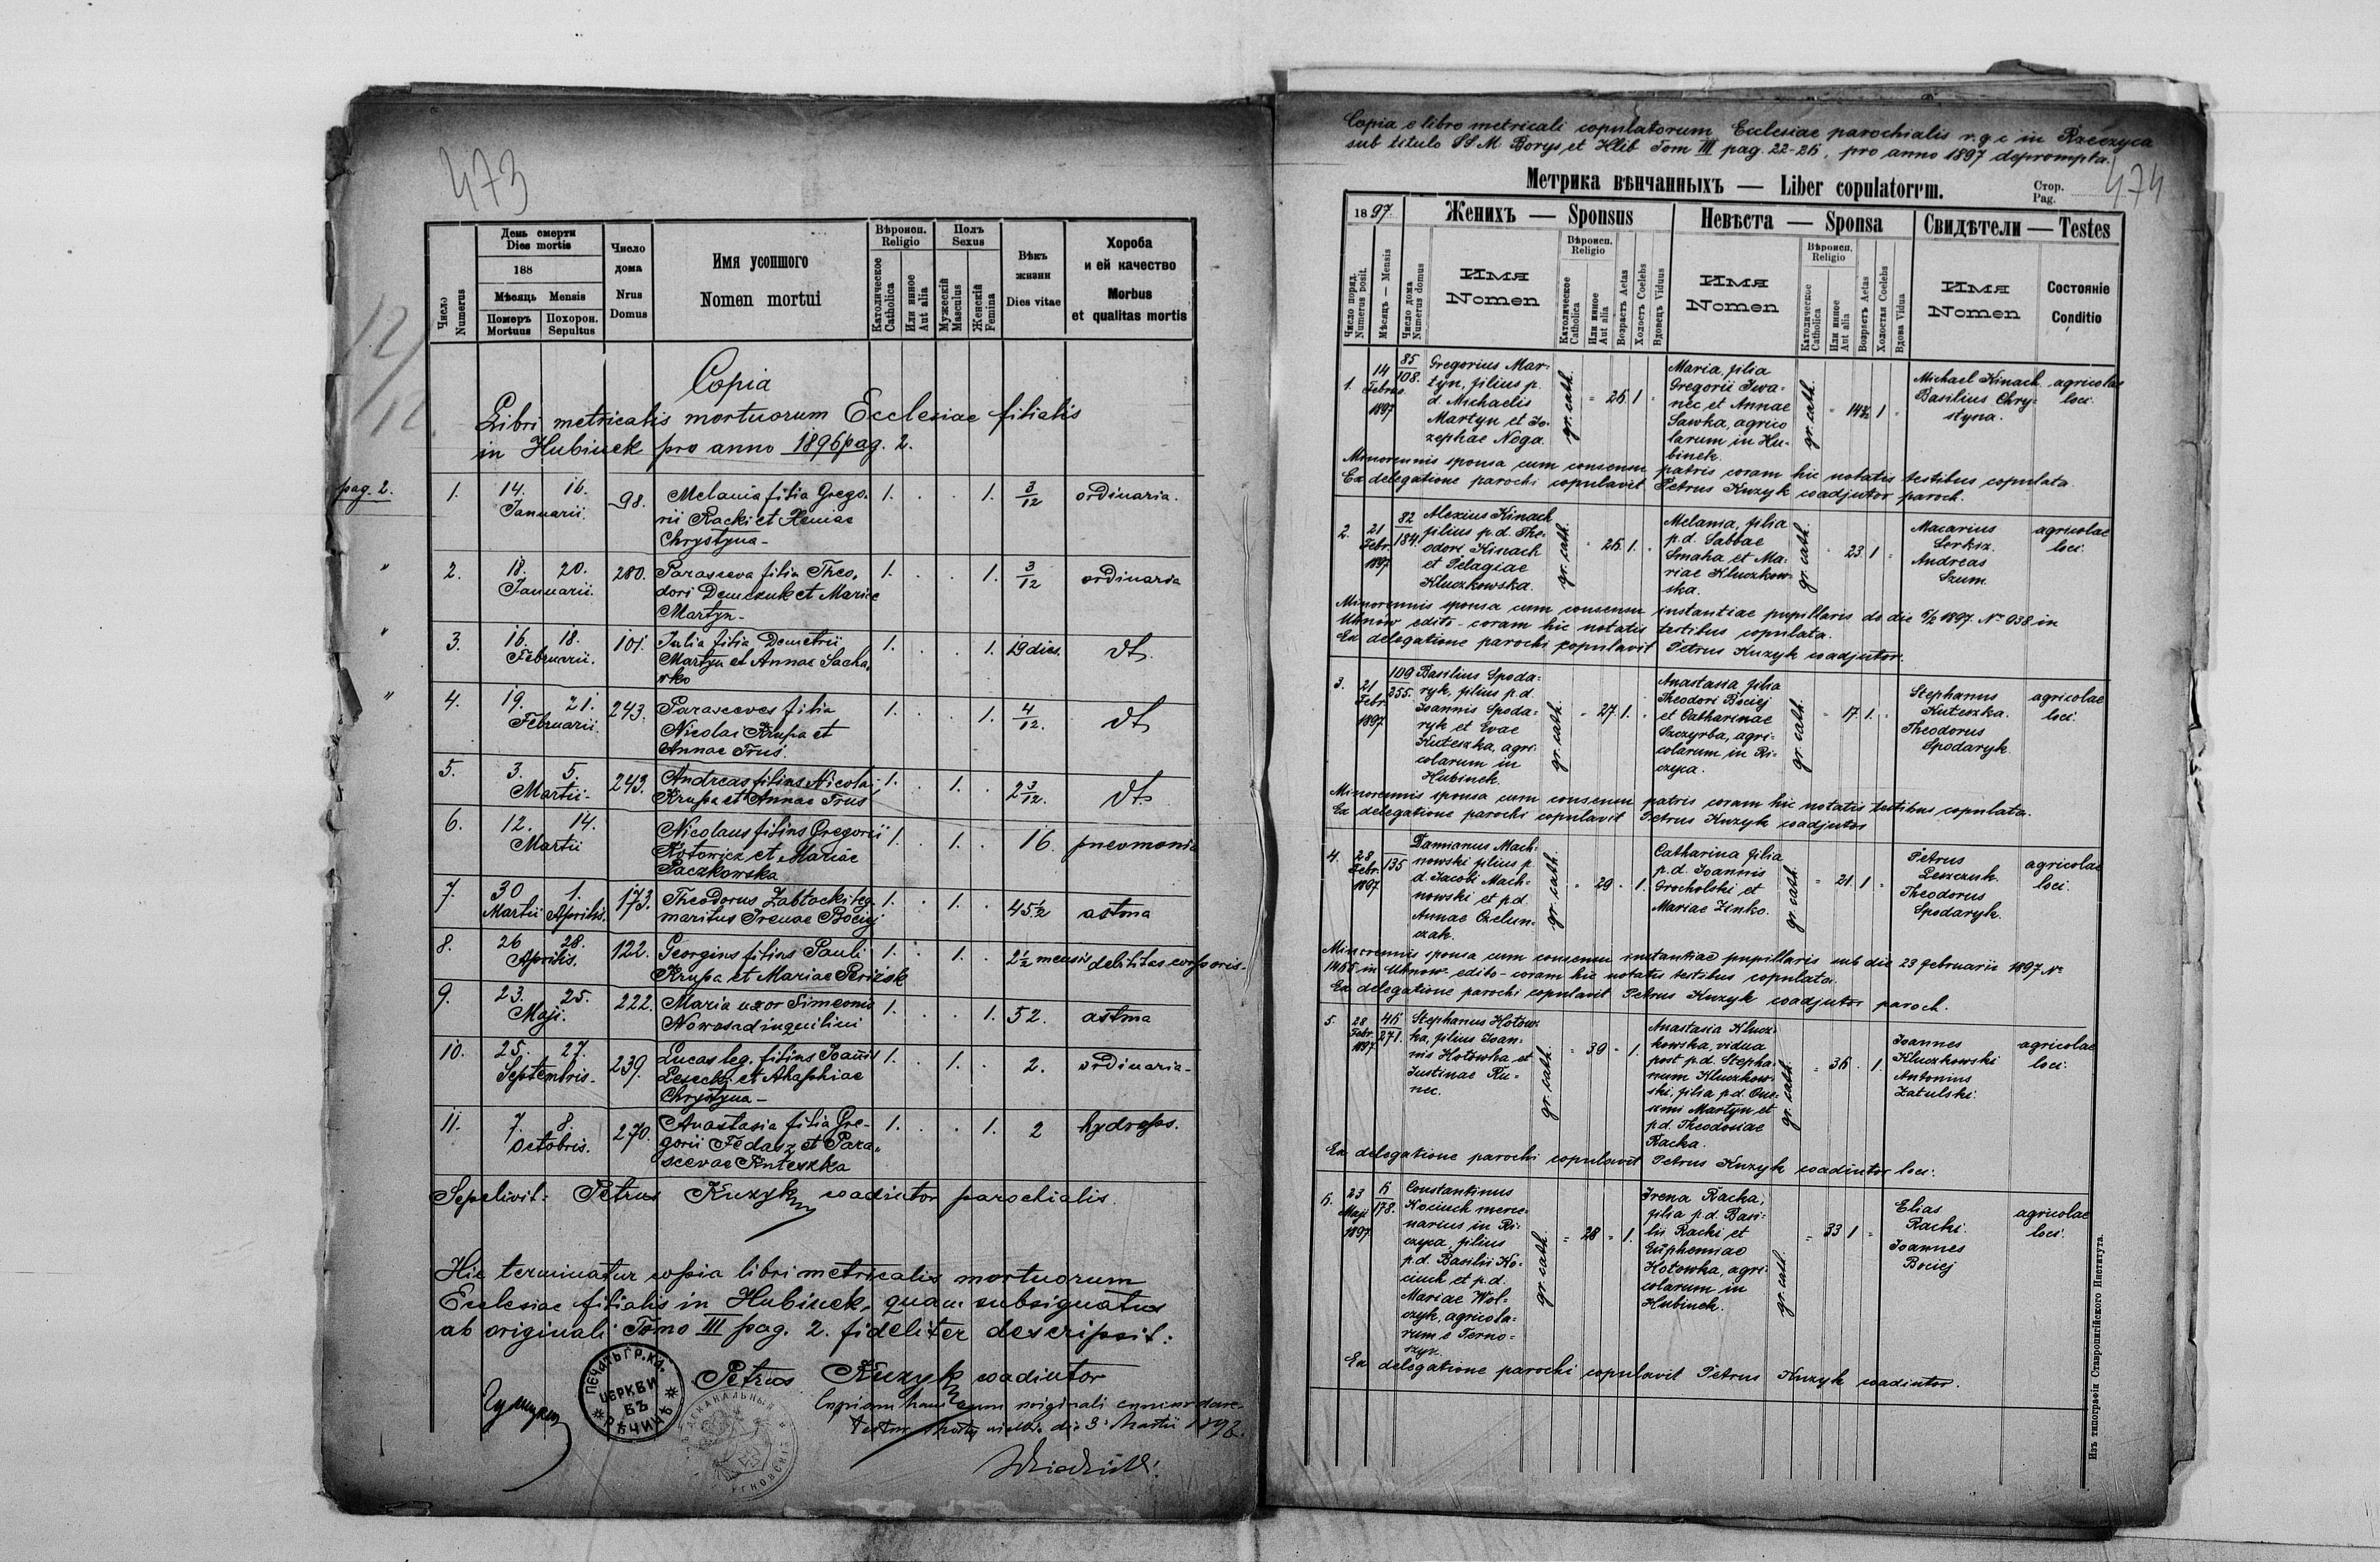 473
День смерти
Dies mortis
188
Мѣсяць Mensis
Померъ
Mortuus
Похорон.
Sepultus
Число
Numerus
Число
дома
Nrus
Domus
Имя усопшого
Nomen mortui
Вѣроисп.
Religio
Католическое
Catholica
Или инное
Aut alia
Полъ
Sexus
Мужескій
Masculus
Женскій
Femina
Вѣкъ
жизни
Dies vitae
Хороба
и ей качество
Morbus
et qualitas mortis
12/12
Copia
Libri metricalis mortuorum Ecclesiae filialis
in Hubinek pro anno 1896 pag. 2.
pag. 2.
1. 14. 16. Januarii. 98. Melania filia Grego-
rii Racki et Xeniae
Chrystyna - 1. . . 1. 3/12 ordinaria.
" 2. 18. 20. Januarii. 280. Parasceva filia Theo-
dori Demczuk et Mariae
Martyn - 1. . . 1. 3/12 ordinaria
" 3. 16. 18. Februarii. 101. Julia filia Demetrii
Martyn et Annae Sacha-
rko 1. . . 1. 19 dies. dt.
" 4. 19. 21. Februarii. 243. Parasceves filia
Nicolai Krupa et
Annae Trus. 1. . . 1. 4/12. dt.
5. 3. 5. Martii - 243. Andreas filius Nicolai
Krupa et Annae Trus 1. . 1. . 2 3/12. dt.
6. 12. 14. Martii Nicolaus filius Gregorii
Kotowicz et Mariae
Paczkowska 1. . 1. . 16. pneomonia
7. 30 Martii 1. Aprilis. 173. Theodorus Zabłocki leg.
maritus Irenae Bociej 1. . 1. . 45 1/2 astma
8. 26 28. Aprilis. 122. Georgius filius Pauli
Krupa et Mariae 1. . 1. . 2 1/2 mensis debilitas corporis.
9. 23. 25. Maji. 222. Maria uxor Simeonis
Nowosad inquilini 1. . . 1. 52. astma
10. 25. 27. Septembris. 239. Lucas leg. filius Joannis
et Ahaphiae
Chrystyna - 1. . 1. . 2. ordinaria -
11. 7. 8. Octobris. 270. Anastasia filia Gre-
gorii Fedasz et Para-
scevae Kuteszka 1. . . 1. 2 hydrops.
Sepelivit - Petrus Kuzyk coadiutor parochialis.
Hic terminatur copia libri metricalis mortuorum
Ecclesiae filialis in Hubinek, quam subsignatus
ab originali Tomo III pag. 2. fideliter descripsit:
Petrus Kuzyk coadiutor
ПЕЧАТЬ ГР. КА.
ЦЕРКВИ
ВЪ
РѢЧИЦѢ
Copiam hanc cum originali
die 3 Martii 1898.
Copia e libro metricali copulatorum Ecclesiae parochialis r. g. c in Rzeczyca
sub titulo SS M Borys et Hlib Tom III pag. 22-26, pro anno 1897 deprompta.
Метрика вѣнчанныхъ — Liber copulatorum.
Стор.
Pag.
474
1897.
Женихъ — Sponsus
Невѣста — Sponsa
Свидѣтели — Testes
Число поряд.
Numerus posit.
Мѣсяць — Mensis
Число дома
Numerus domus
Имя
Nomen
Вѣроисп.
Religio
Католическое
Catholica
Или инное
Aut alia
Возрастъ Aetas
Холостъ Coelebs
Вдовецъ Viduus
Имя
Nomen
Вѣроисп.
Religio
Католическое
Catholica
Или инное
Aut alia
Возрастъ Aetas
Холостая Coelebs
Вдова Vidua
Имя
Nomen
Состоянiе
Conditio
1. 14 Februa. 1897 85/108. Gregorius Mar-
tyn, filius p.
d. Michaelis
Martyn et Jo-
zephae Noga. gr. cath. 26 1 Maria, filia
Gregorii Iwa-
nec et Annae
Sawka, agrico
larum in Hu-
binek. gr. cath. 1 Michael Kinach
Basilius Chry-
styna. agricolae
loci.
Minorennis sponsa cum consensu patris coram hic notatis testibus copulata
Ex delegatione parochi copulavit Petrus Kuzyk coadjutor paroch.
2. 21 Febr. 1897 82/184. Alexius Kinach
filius p. d. The-
odori Kinach
et Pelagiae
Kluczkowska. gr. cath. 26 1. Melania, filia
p. d. Sabbae
Smaha et Ma-
riae Kluczkow-
ska. gr. cath. 23 1 Macarius
Serkiz.
Andreas
Szum. agricolae
loci.
Minorennis sponsa cum consensu instantiae pupillaris de die 6/2 1897. No 938 in
Uhnow edito - coram hic notatis testibus copulata.
Ex delegatione parochi copulavit Petrus Kuzyk coadjutor.
3. 21 Febr. 1897 109/255. Basilius Spoda-
ryk, filius p. d.
Joannis Spoda-
ryk et Evae
Kuteszka, agri-
colarum in
Hubinek. gr. cath. 27 1. Anastasia filia
Theodori Bociej
et Catharinae
Szczyrba, agri-
colarum in Ri-
czyca. gr. cath. 17 1. Stephanus
Kuteszka.
Theodorus
Spodaryk. agricolae
loci.
Minorennis sponsa cum consensu patris coram hic notatis testibus copulata.
Ex delegatione parochi copulavit Petrus Kuzyk coadjutor
4. 28 Febr. 1897 135 Damianus Mach-
nowski filius p.
d. Jacobi Mach-
nowski et p. d.
Annae Czelun-
czak. gr. cath. 29 1. Catharina filia
p. d. Joannis
Grocholski et
Mariae Zinko. gr. cath. 21 1 Petrus
Leszczuk.
Theodorus
Spodaryk. agricolae
loci.
Minorennis sponsa cum consensu instantiae pupillaris sub die 23 februarii 1897 No
1465 in Uhnow edito - coram hic notatis testibus copulata.
Ex delegatione parochi copulavit Petrus Kuzyk coadjutor paroch.
5. 28 Febr. 1897 46/271. Stephanus Kotow-
ka, filius Joan-
nis Kotowka et
Justinae Ku-
nec. gr. cath. 39 1. Anastasia Klucz-
kowska, vidua
post p. d. Stepha-
num Kluczkow-
ski, filia p. d. One-
simi Martyn et
p. d. Theodosiae
Racka. gr. cath. 36 1. Joannes
Kluczkowski
Antonius
Zatulski. agricolae
loci.
Ex delegatione parochi copulavit Petrus Kuzyk coadiutor loci.
6. 23 Maji 1897 6/178. Constantinus
Kociuck merce-
narius in Ri-
czyca, filius
p. d. Basilii Ko-
ciuck et p. d.
Mariae Wol-
czyk, agricola-
rum e Terno-
szyn. gr. cath. 28 1. Irena Racka,
filia p. d. Basi-
lii Racki et
Euphemiae
Kotowka, agri-
colarum in
Hubinek. gr. cath. 33 1 Elias
Racki.
Joannes
Bociej agricolae
loci.
Ex delegatione parochi copulavit Petrus Kuzyk coadiutor.
Изъ типографіи Ставропигійского Института.